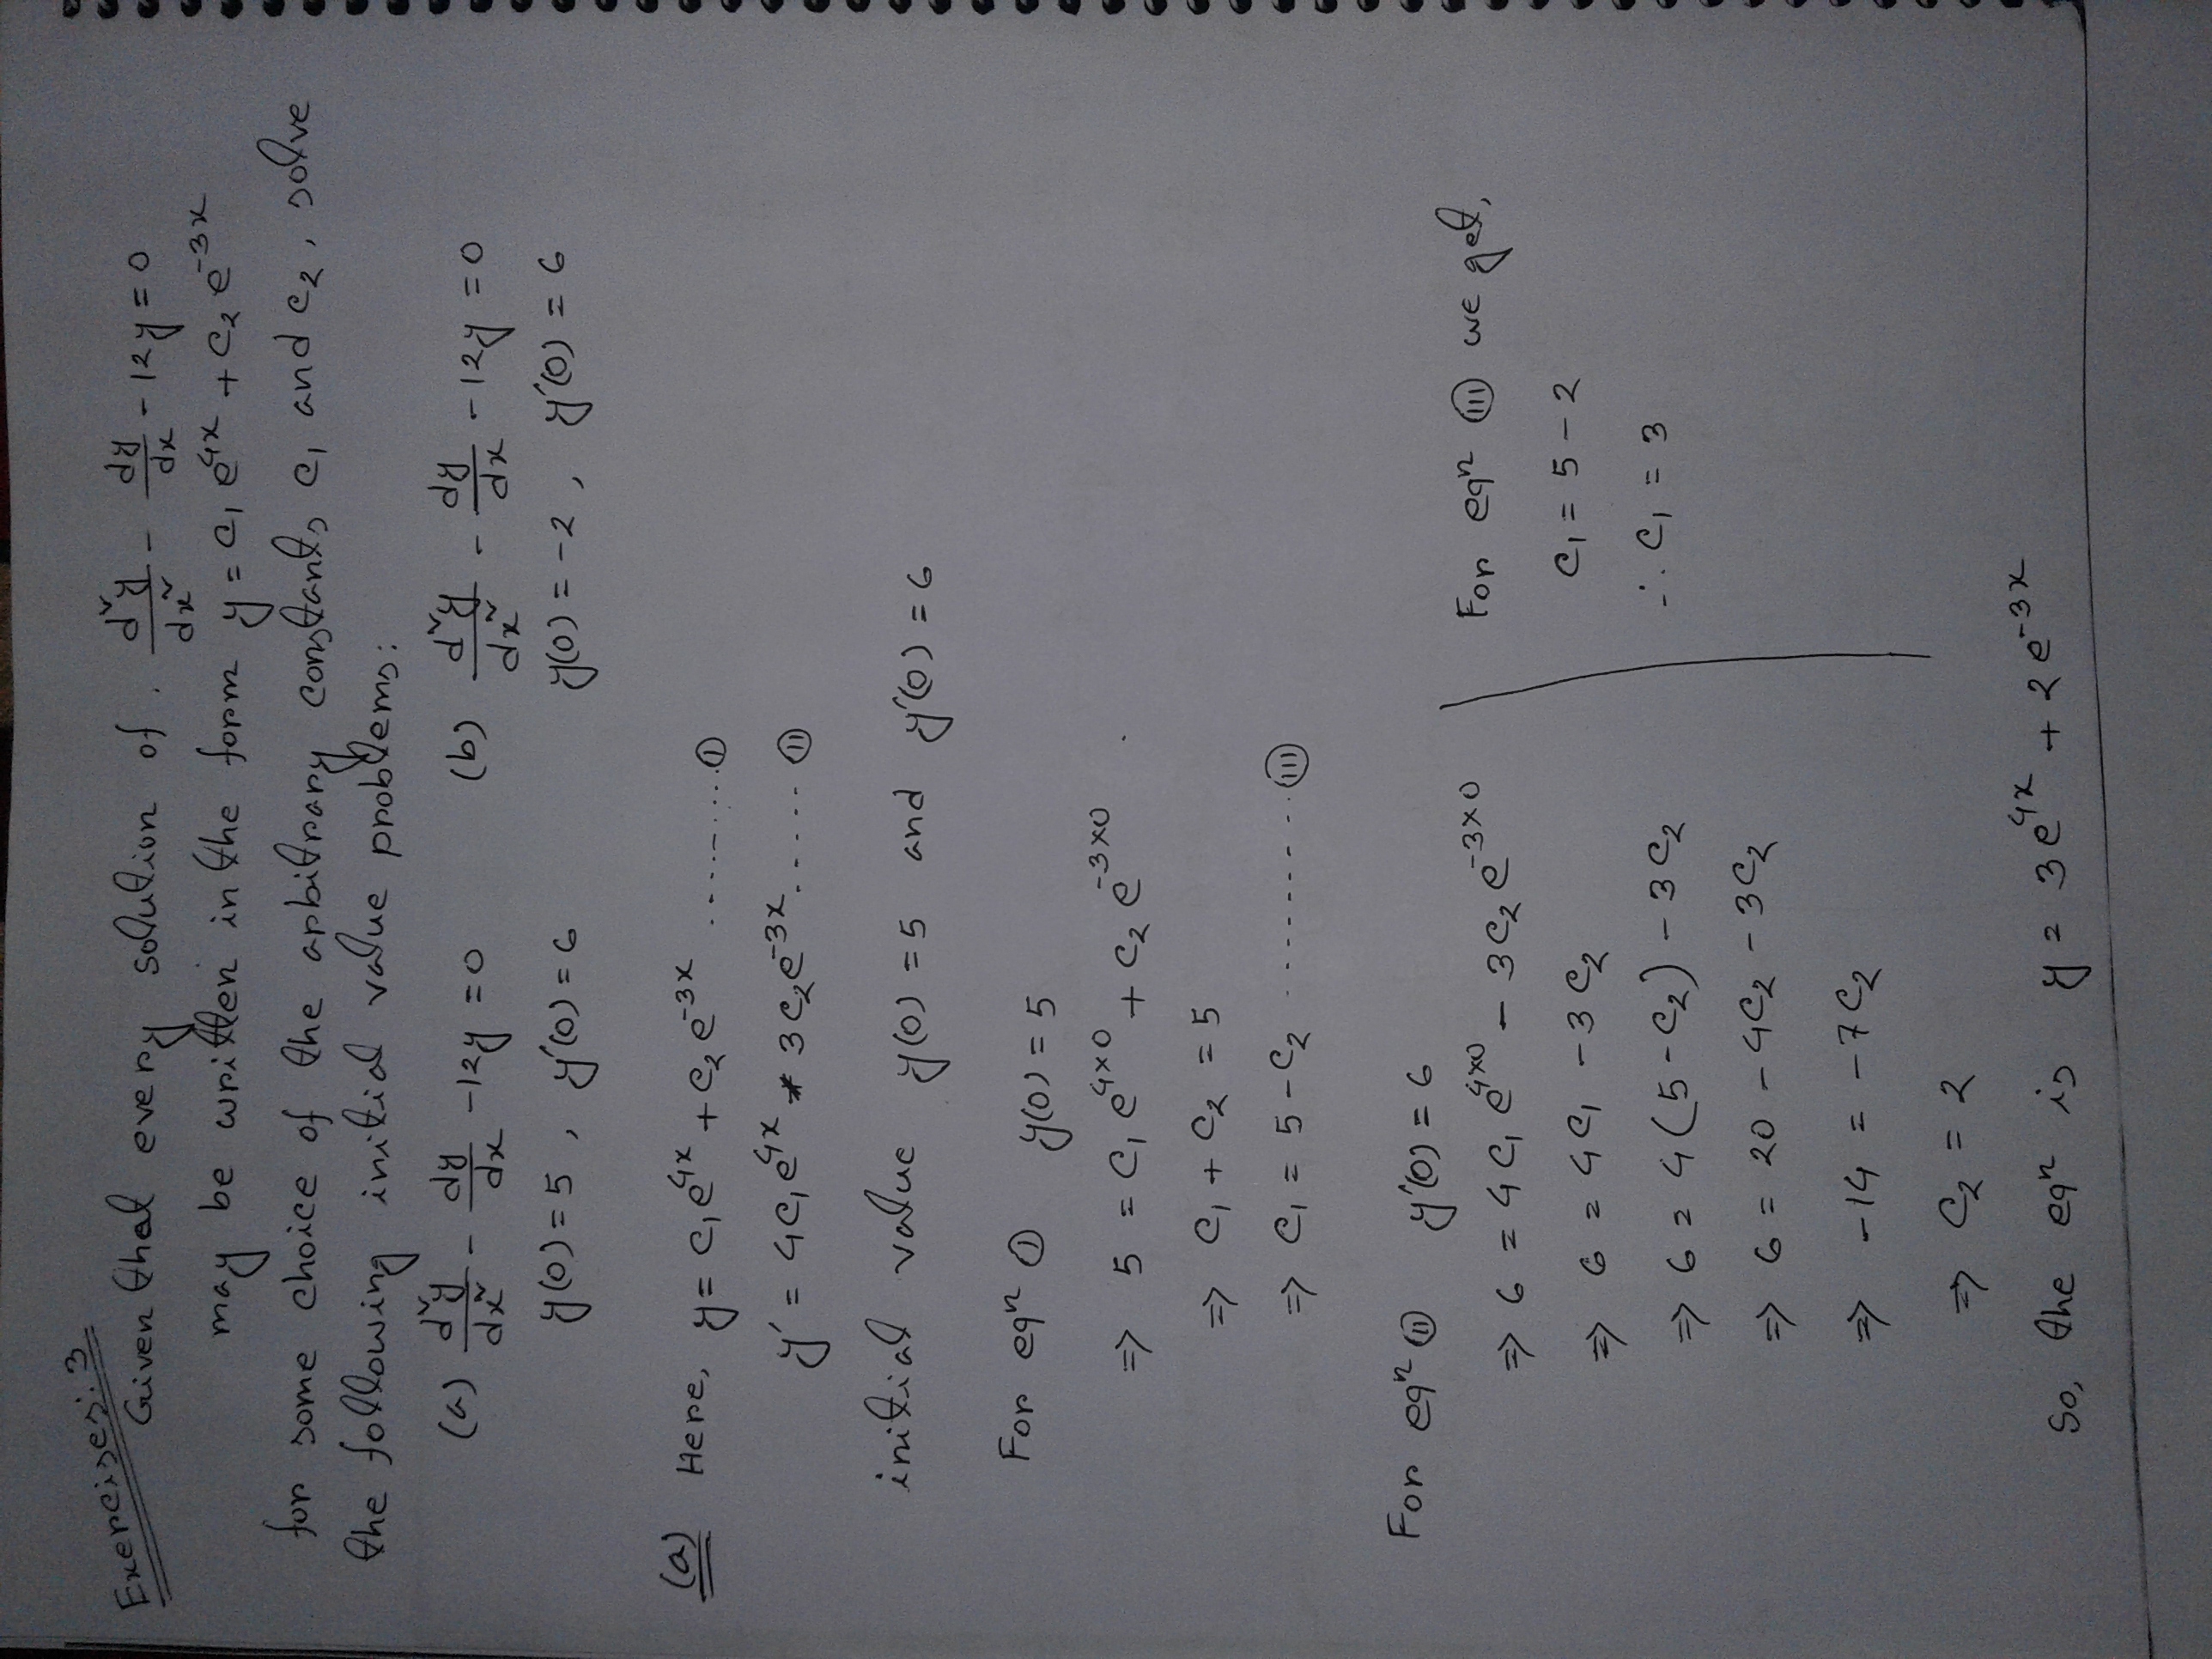 Exercises: 3
Given that every solution of . d²y/dx² - dy/dx - 12y = 0
may be written in the form y = c₁ e⁴ˣ + c₂ e⁻³ˣ
for some choice of the arbitrary constants c₁ and c₂, solve
the following initial value problems:
(a) d²y/dx² - dy/dx - 12y = 0 (b) d²y/dx² - dy/dx - 12y = 0
y(0) = 5 , y'(0) = 6 y(0) = -2 , y'(0) = 6
(a) Here, y = c₁e⁴ˣ + c₂e⁻³ˣ .......... (I)
y' = 4c₁e⁴ˣ - 3c₂e⁻³ˣ ...... (II)
initial value y(0) = 5 and y'(0) = 6
For eqⁿ (I) y(0) = 5
⇒ 5 = c₁ e^(4×0) + c₂ e^(-3×0)
⇒ c₁ + c₂ = 5
⇒ c₁ = 5 - c₂ .......... (III)
For eqⁿ (II) y'(0) = 6
⇒ 6 = 4c₁ e^(4×0) - 3c₂ e^(-3×0)
⇒ 6 = 4c₁ - 3c₂
⇒ 6 = 4(5 - c₂) - 3c₂
⇒ 6 = 20 - 4c₂ - 3c₂
⇒ -14 = -7c₂
⇒ c₂ = 2
For eqⁿ (III) we get,
c₁ = 5 - 2
∴ c₁ = 3
So, the eqⁿ is y = 3e⁴ˣ + 2e⁻³ˣ